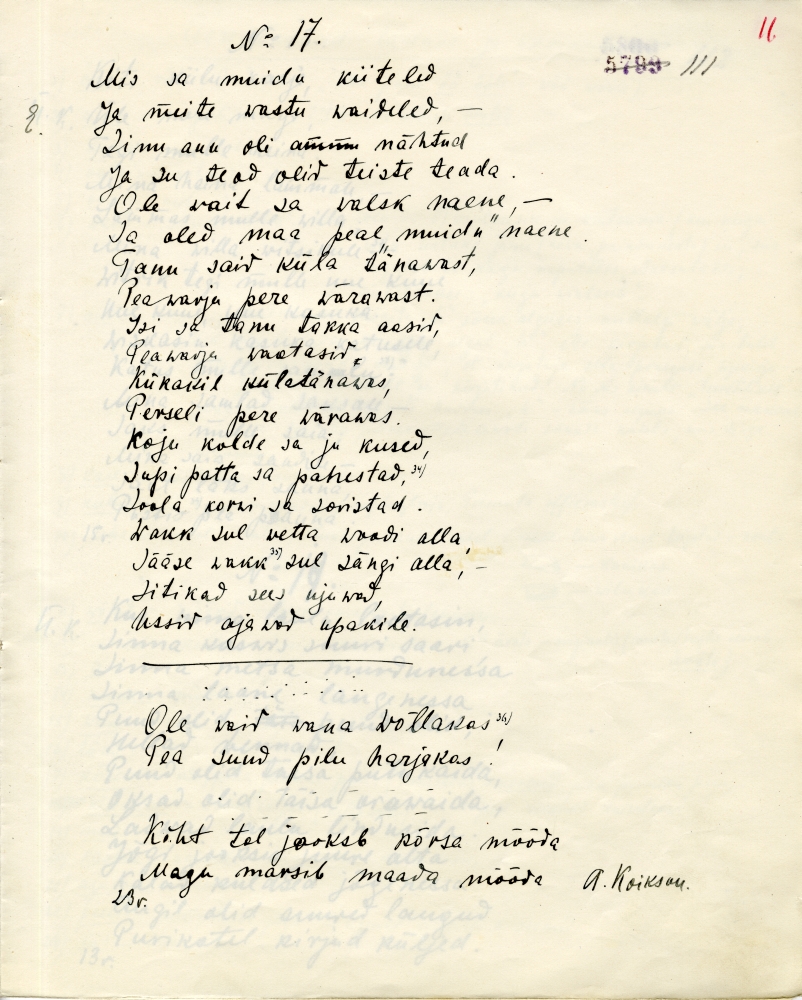 No 17.
11
5799 111
Mis sa muidu kiiteled
Ja meite wastu waideled, —
E.
Sinu auu oli ammu nähtud
Ja su teod olid teiste teada.
Ole wait sa walsk naene, —
Sa oled maa peal "muidu" naene.
Tanu said küla tänawast,
Peawarju pere wärawast.
Isi sa tanu takka aasid,
Peawarju waatasid,
Kükakil külatänawas,
Perseli pere wärawas.
Koju kolde sa ju kused,
Supi patta sa pahestad, 34)
Soola korwi sa soristad.
Wakk sul wetta woodi alla
Sääse wakk 35) sul sängi alla, —
Sitikad sees ujuwad,
Ussid ajawad upakile.
Ole waid wana wõllakas 36)
Pea suud pilu harjakas!
Kõht tal jooksb kõrsa mööda
Magu marsib maada mööda
A. Koikson.
23r.